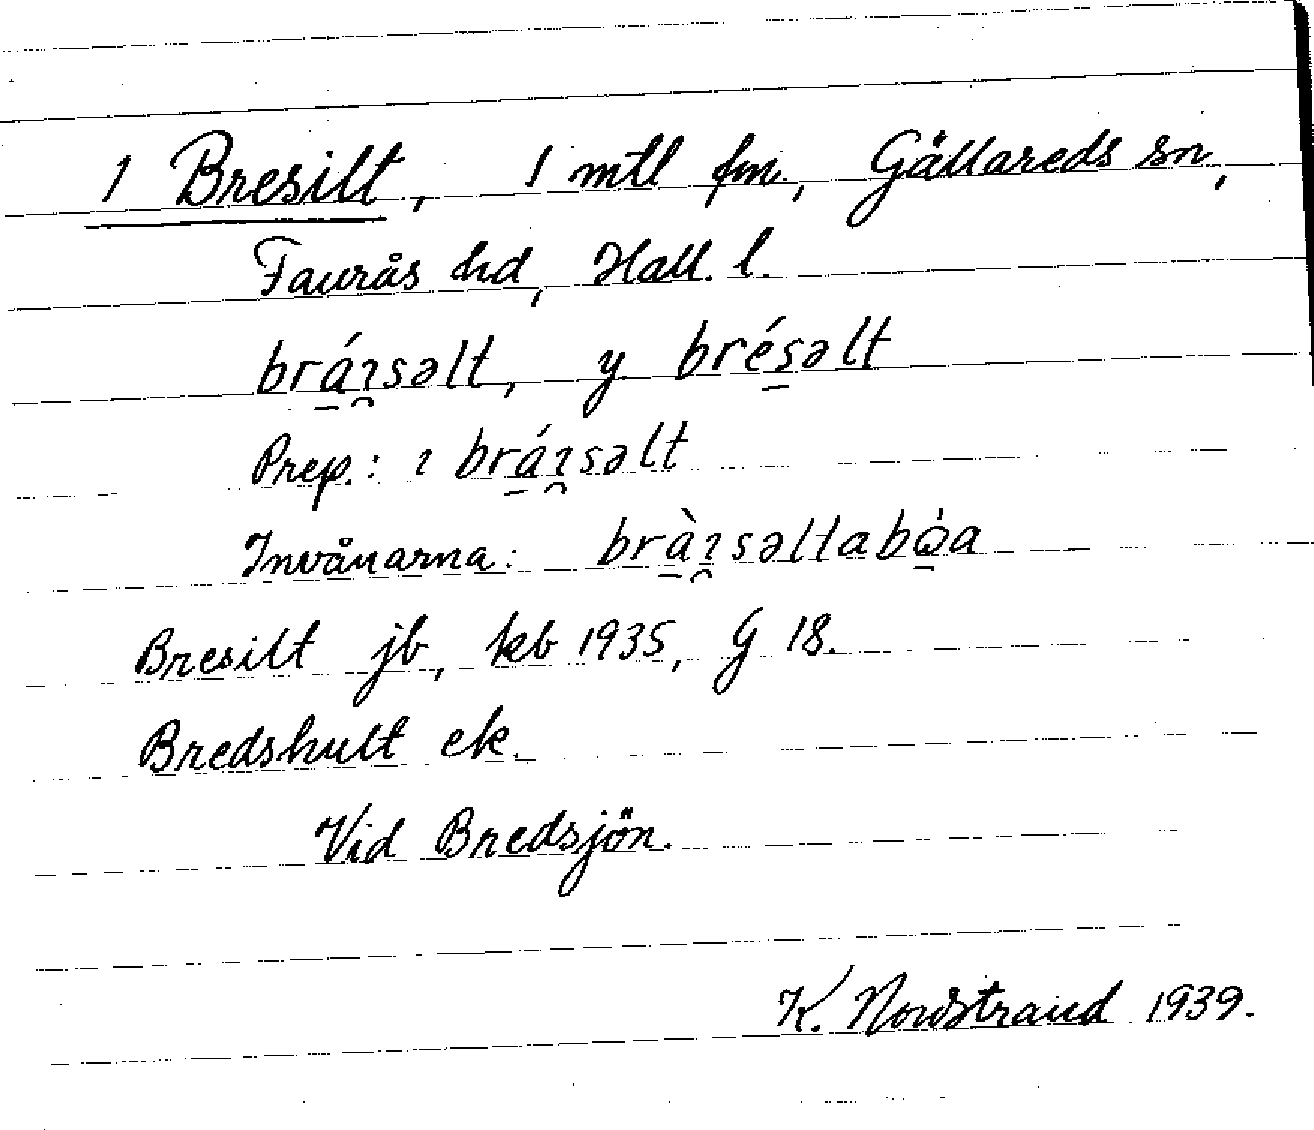 1 Bresilt, 1 mtl fm, Gällareds sn,
Faurås hd, Hall. l.
brá̱ɿ̯səlt, y bré̱səlt
Prep.: ɿ brá̱ɿ̯səlt
Invånarna: brà̱ɿ̯səltabo̱a
Bresilt jb, kb 1935, G 18.
Bredshult ek.
Vid Bredsjön.
K. Nordstrand 1939.